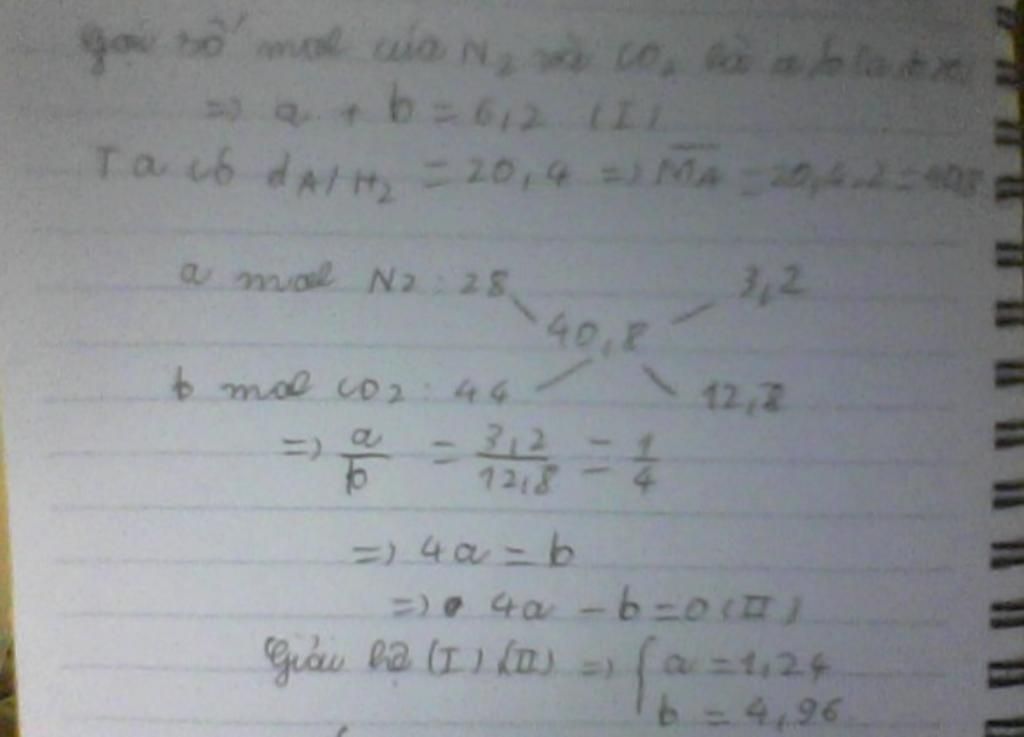 Gọi số mol của N2 và CO2 là a, b
=> a + b = 6,2 (I)
Ta có dA/H2 = 20,4 => MA = 20,4.2 = 40,8
a mol N2 : 28 3,2
40,8
b mol CO2 : 44 12,8
=> a/b = 3,2/12,8 = 1/4
=> 4a = b
=> 4a - b = 0 (II)
Giải hệ (I) (II) => { a = 1,24
b = 4,96